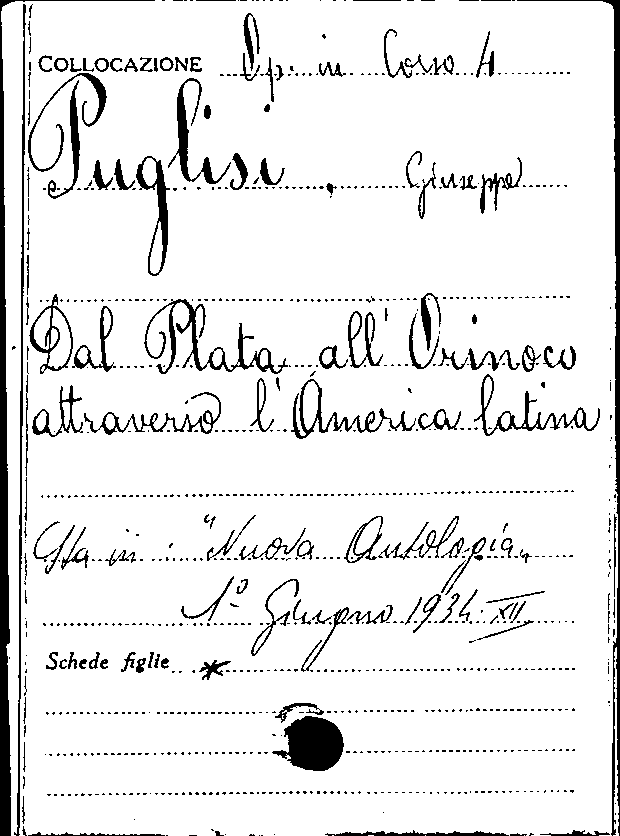 COLLOCAZIONE Op. in Corso 4
Puglisi, Giuseppe
Dal Plata all'Orinoco
attraverso l'America latina
Sta in: "Nuova Antologia„
1º Giugno 1934. XII
Schede figlie *